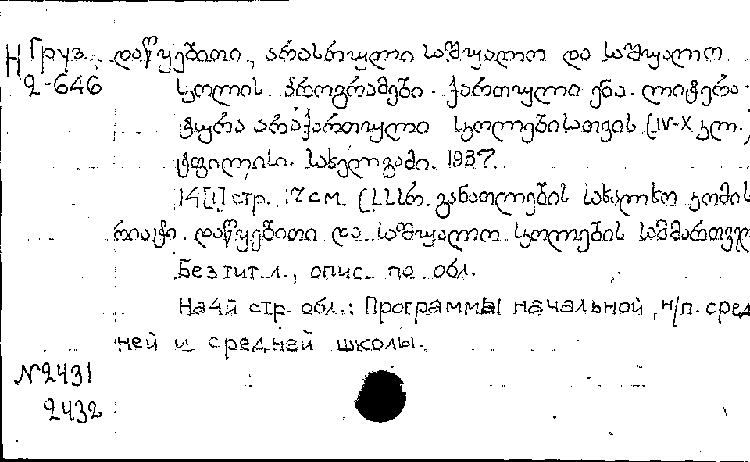 Н Груз. დაწყებითი, არასრული საშუალო და საშუალო
2-646 სკოლის პროგრამები. ქართული ენა. ლიტერა-
ტურა არაქართული სკოლებისათვის (IV-X კლ.)
ტფილისი. სახელგამი. 1937.
14[1] стр. 17 см. (სსსრ. განათლების სახალხო კომისა-
რიატი. დაწყებითი და საშუალო სკოლების სამმართველო
Без тит. л., опис. по обл.
На 4й стр. обл.: Программы начальной, н/п. сред-
ней и средней школы.
№2431
2432